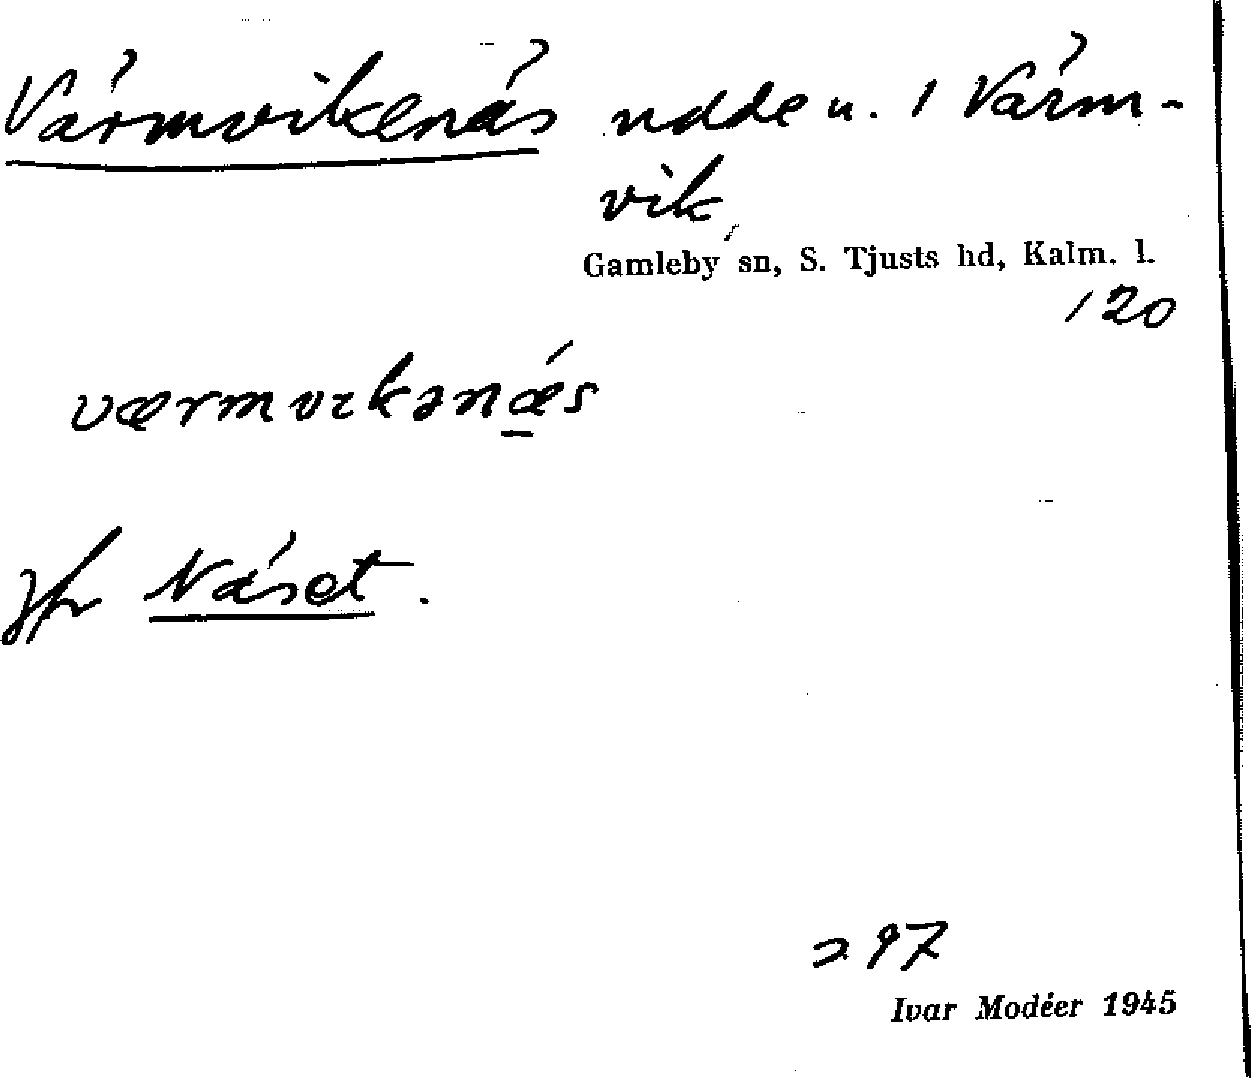 Värmvikenäs udde u. 1 Värm-
vik,
Gamleby sn, S. Tjusts hd, Kalm. l.
120
værmvikənǽs
Jfr Näset.
297
Ivar Modéer 1945